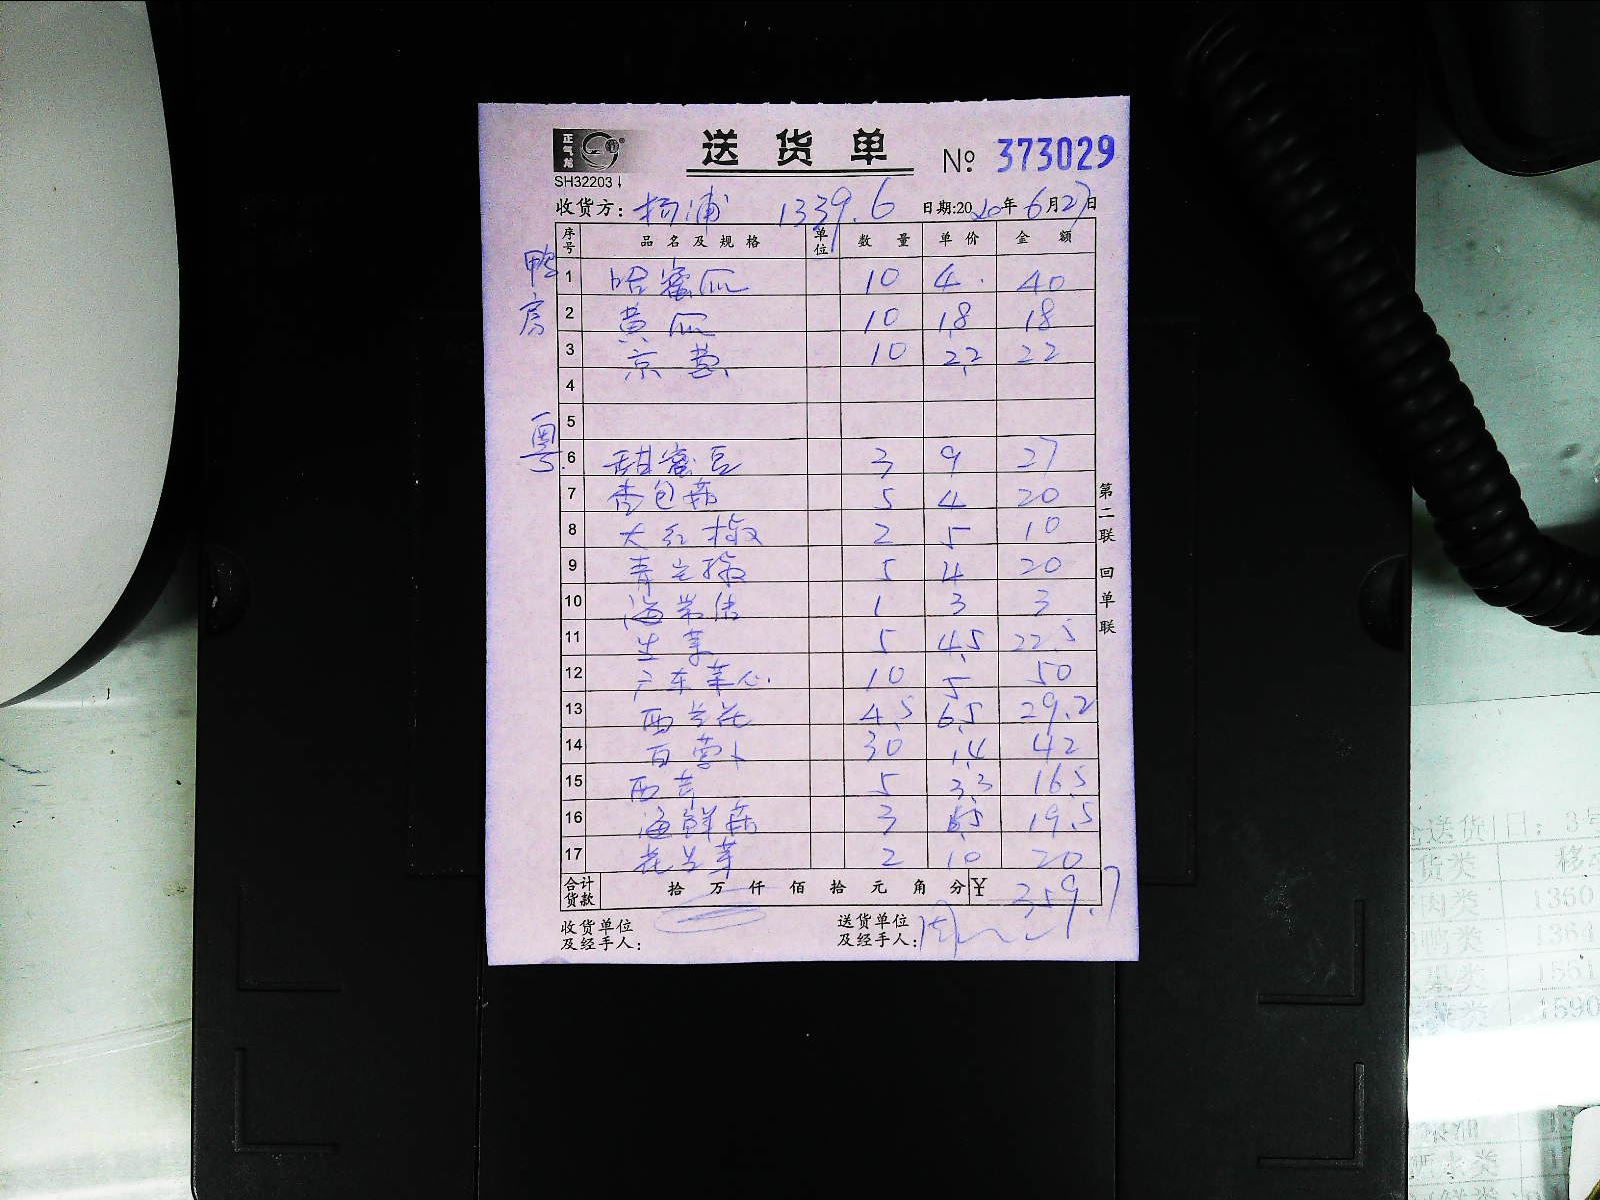 正气龙
送货单 № 373029
SH32203
收货方: 杨浦 1339.6 日期:2020年6月27日
序号 品名及规格 单位 数量 单价 金额
鸭房
1 哈蜜瓜 10 4. 40
2 黄瓜 10 1.8 18
3 京葱 10 2.2 22
4
5
粤.
6 甜蜜豆 3 9 27
7 杏包菇 5 4 20
8 大红椒 2 5 10
9 青尖椒 5 4 20
10 海带结 1 3 3
11 生菜 5 4.5 22.5
12 广东菜心. 10 5 50
13 西兰花 4.5 6.5 29.2
14 白萝卜 30 1.4 42
15 西芹 5 3.3 16.5
16 海鲜菇 3 6.5 19.5
17 花兰芽 2 10 20
合计货款 拾 万 仟 佰 拾 元 角 分 ¥ 359.7
收货单位及经手人:
送货单位及经手人:
第二联 回单联
送货 日: 3号
货类
肉类 1360
鸭类 1364
1551
1590